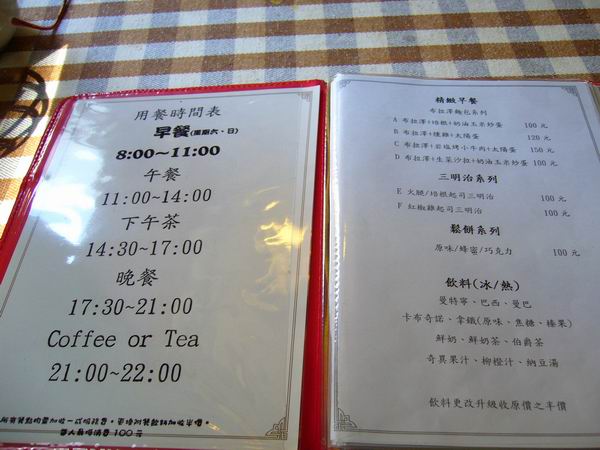 用餐時間表
早餐(星期六、日)
8:00~11:00
午餐
11:00~14:00
下午茶
14:30~17:00
晚餐
17:30~21:00
Coffee or Tea
21:00~22:00
所有餐點均需加收一成服務費。
每人最低消費 100 元
精緻早餐
布拉澤麵包系列
A 布拉澤+培根+奶油玉米炒蛋 100 元
B 布拉澤+燻雞+太陽蛋 120 元
C 布拉澤+岩塩烤小牛肉+太陽蛋 150 元
D 布拉澤+生菜沙拉+奶油玉米炒蛋 100 元
三明治系列
E 火腿/培根起司三明治 100 元
F 紅椒雞起司三明治 100 元
鬆餅系列
原味/蜂蜜/巧克力 100 元
飲料(冰/熱)
曼特寧、巴西、曼巴
卡布奇諾、拿鐵(原味、焦糖、榛果)
鮮奶、鮮奶茶、伯爵茶
奇異果汁、柳橙汁、納豆湯
飲料更改升級收原價之半價